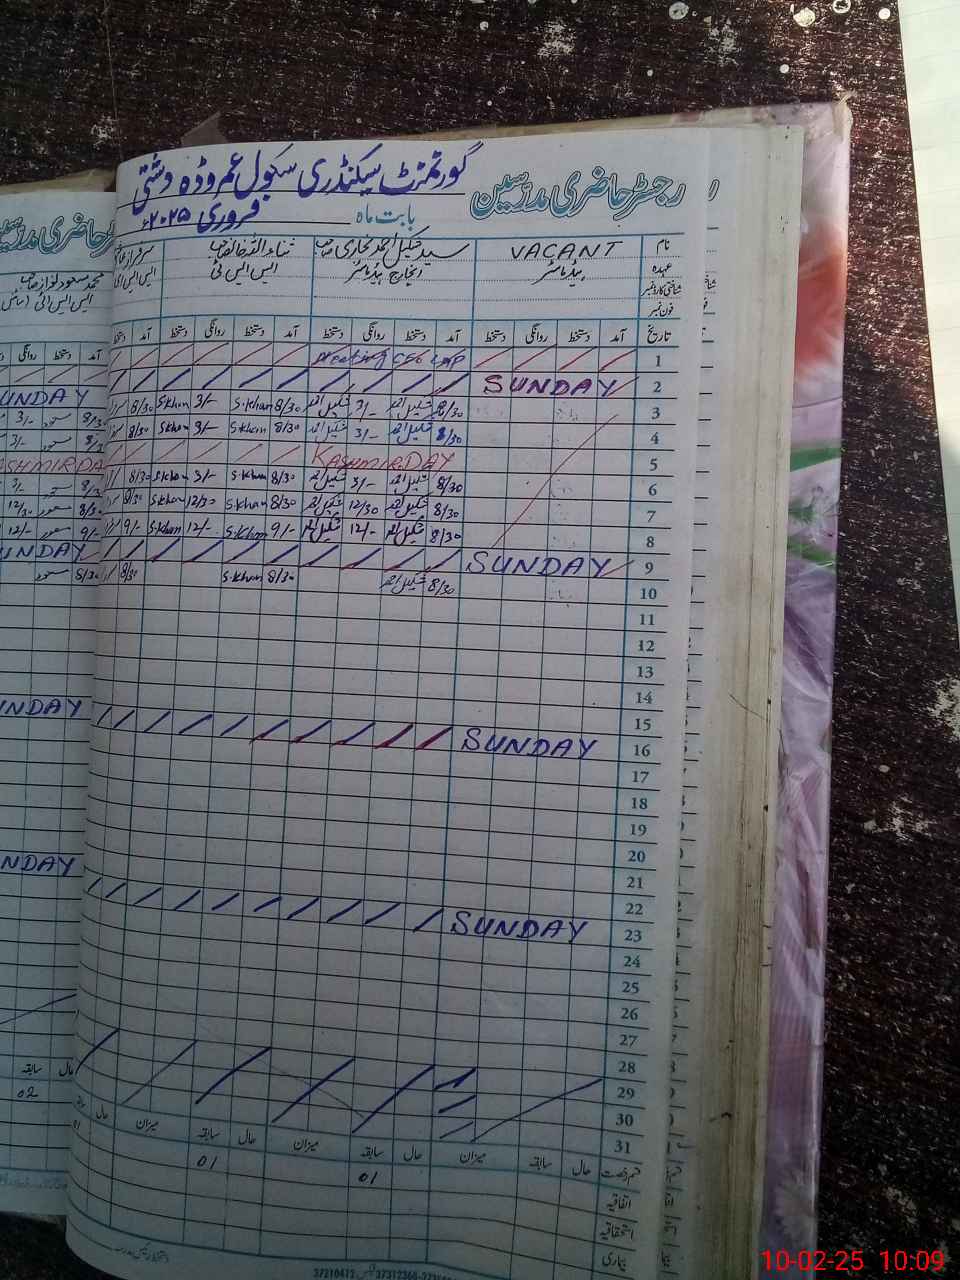 گورنمنٹ سیکنڈری سکول عمر وڈہ دشتی
رجسٹر حاضری مدرسین
بابت ماہ فروری ۲۰۲۵ء
نام VACANT سید شکیل احمد بخاری صاحب ثناء اللہ خان صاحب
عہدہ ہیڈ ماسٹر انچارج ہیڈ ماسٹر ایس ایس ٹی
شناختی کارڈ نمبر
فون نمبر
تاریخ آمد دستخط روانگی دستخط آمد دستخط روانگی دستخط آمد دستخط روانگی دستخط
1 Meeting CEO
2 SUNDAY
3 8/30 شکیل احمد 3/- شکیل احمد 8/30 S.Khan 3/- S.Khan 8/30
4 8/30 شکیل احمد 3/- شکیل احمد 8/30 S.Khan 3/- S.Khan 8/30
5 KASHMIR DAY
6 8/30 شکیل احمد 3/- شکیل احمد 8/30 S.Khan 3/- S.Khan 8/30
7 8/30 شکیل احمد 12/30 شکیل احمد 8/30 S.Khan 12/30 S.Khan 8/30
8 8/30 شکیل احمد 12/- شکیل احمد 9/- S.Khan 12/- S.Khan 9/-
9 SUNDAY
10 8/30 شکیل احمد 8/30 S.Khan 8/30
11
12
13
14
15
16 SUNDAY
17
18
19
20
21
22
23 SUNDAY
24
25
26
27
28
29
30
31
قسم رخصت حال سابقہ میزان حال سابقہ میزان حال سابقہ میزان حال
اتفاقیہ 01 01
استحقاقیہ
بیماری
محمد مسعود نواز صاحب
ایس ایس ٹی
آمد دستخط روانگی
UNDAY
8/30 مسعود 3/-
KASHMIR DA
8/30 مسعود 12/30
9/- مسعود 12/-
UNDAY
8/30 مسعود
UNDAY
NDAY
حال سابقہ
02
10-02-25 10:09